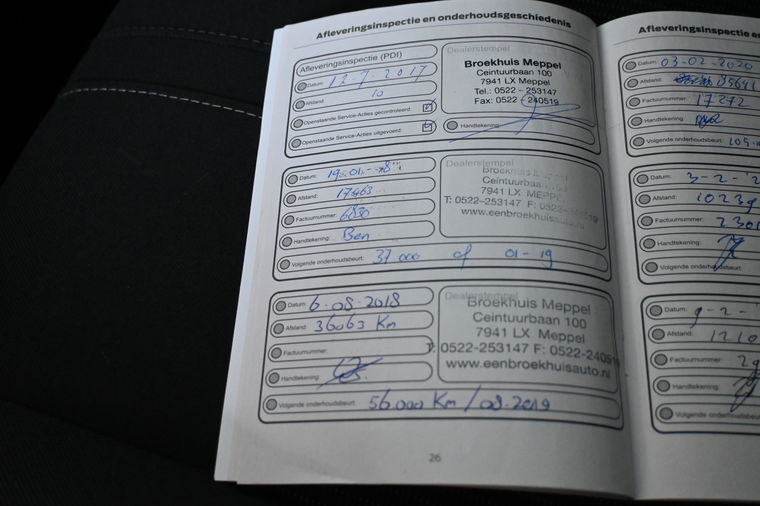 Afleveringsinspectie en onderhoudsgeschiedenis
Afleveringsinspectie (PDI)
Datum: 12-7-2017
Afstand: 10
Openstaande Service-Acties gecontroleerd
Openstaande Service-Acties uitgevoerd
Dealerstempel
Broekhuis Meppel
Ceintuurbaan 100
7941 LX Meppel
Tel.: 0522 - 253147
Fax: 0522 - 240519
Handtekening:
Datum: 19-01-
Afstand: 17463
Factuurnummer: 6830
Handtekening: Ben
Dealerstempel
Broekhuis Meppel
Ceintuurbaan 100
7941 LX MEPPEL
T: 0522-253147 F: 0522-240519
www.eenbroekhuisauto.nl
Volgende onderhoudsbeurt: 37000 of 01-19
Datum: 6-08-2018
Afstand: 36063 Km
Factuurnummer:
Handtekening:
Dealerstempel
Broekhuis Meppel
Ceintuurbaan 100
7941 LX Meppel
T: 0522-253147 F: 0522-240519
www.eenbroekhuisauto.nl
Volgende onderhoudsbeurt: 56000 Km / 08-2019
26
Afleveringsinspectie en
Datum: 03-02-2020
Afstand: 85641
Factuurnummer: 17272
Handtekening:
Volgende onderhoudsbeurt: 105
Datum: 3-2-
Afstand: 1023
Factuurnummer: 2301
Handtekening:
Volgende onderhoudsbeurt:
Datum: 9-2-
Afstand: 1210
Factuurnummer:
Handtekening:
Volgende onderhoudsbeurt: